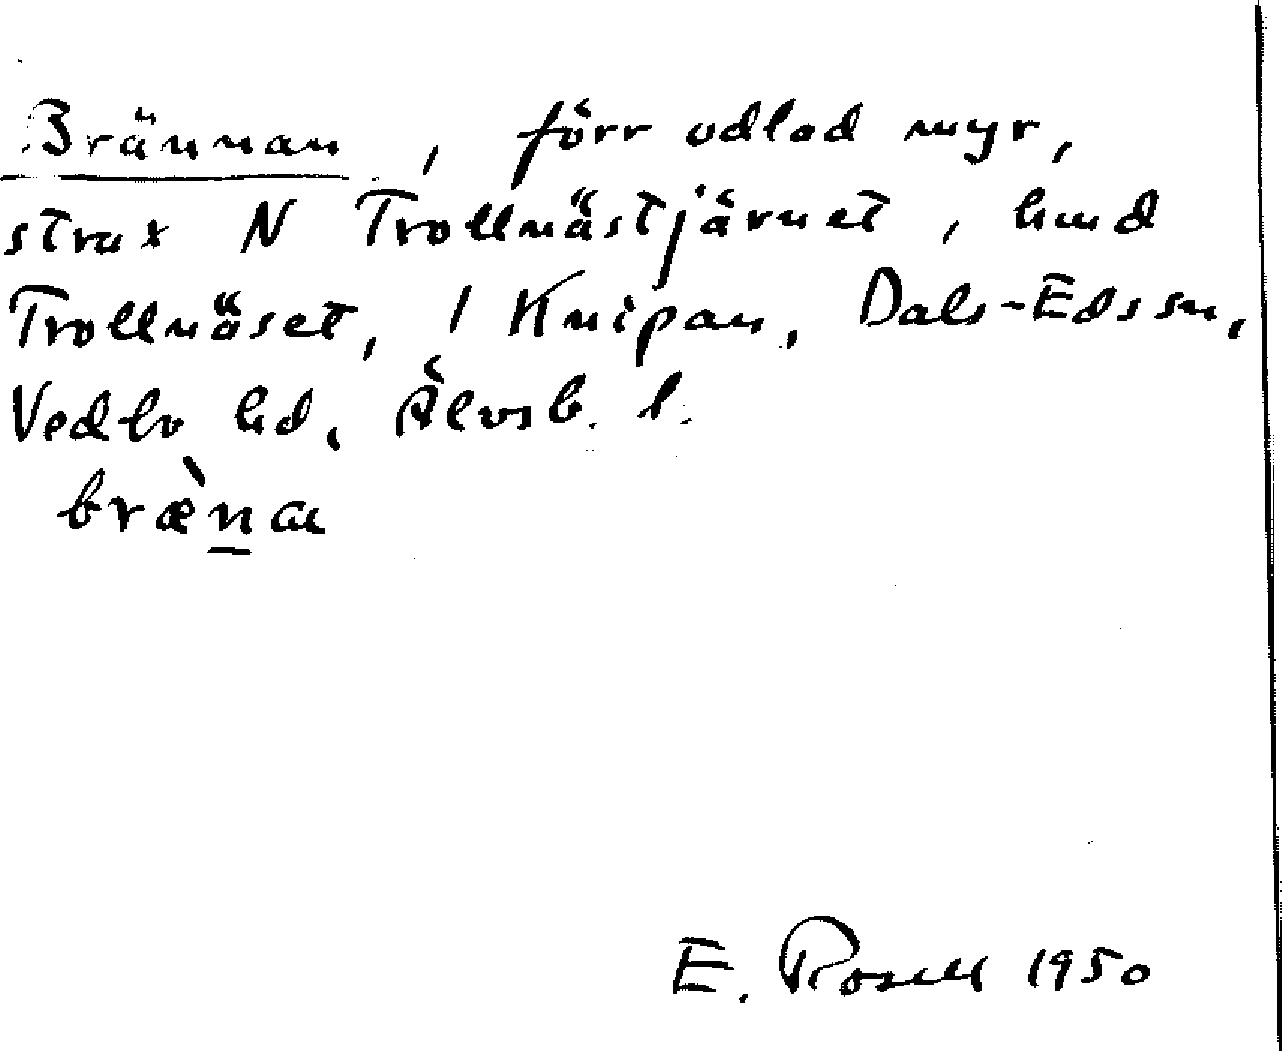 Brännan, förr odlad myr,
strax N Trollnästjärnet, hmd
Trollnäset, 1 Knipan, Dals-Eds sn,
Vedbo hd, Älvsb. l.
bræ̀na
E. Rosell 1950